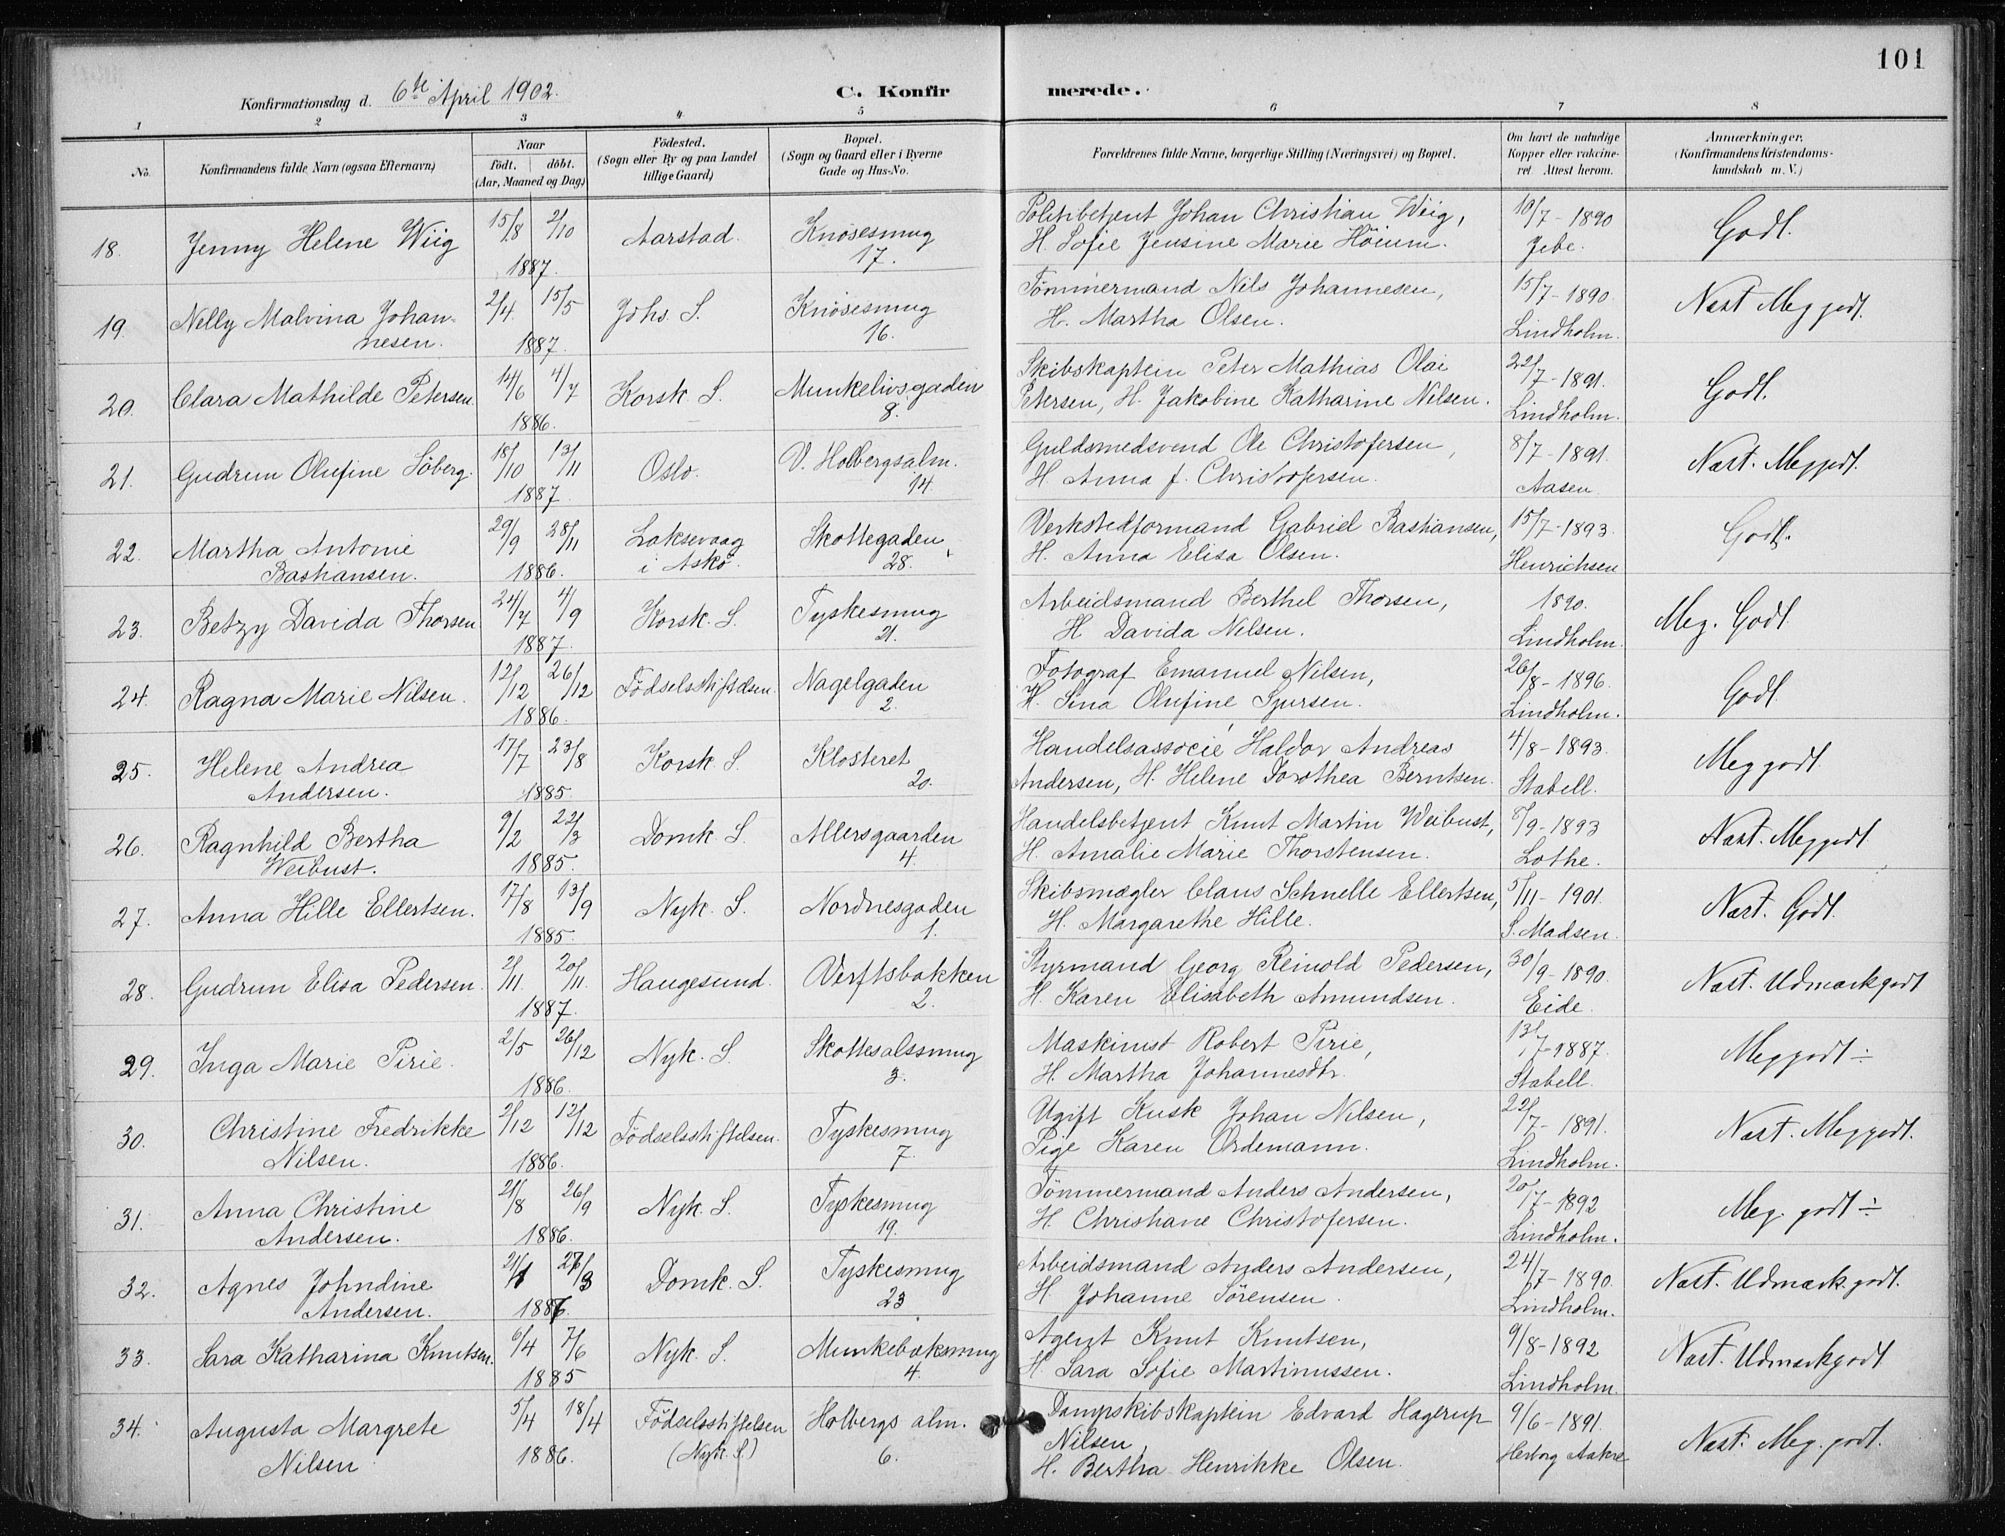 101
Konfirmationsdag d. 6te April 1902.
C. Konfirmerede.
1 2 3 4 5 6 7 8
No. Konfirmandens fulde Navn (ogsaa Efternavn) Naar født. døbt. (Aar, Maaned og Dag) Födested. (Sogn eller By og paa Landet tillige Gaard) Bopæl. (Sogn og Gaard eller i Byerne Gade og Hus-No. Forældrenes fulde Navne, borgerlige Stilling (Næringsvei) og Bopæl. Om havt de naturlige Kopper eller vakcineret Attest herom. Anmærkninger. (Konfirmandens Kristendomskundskab m. V.)
18. Jenny Helene Wiig 15/8 2/10 1887. Aarstad. Knösesmug 17. Politibetjent Johan Christian Wiig, H. Sofie Jensine Marie Höium. 10/7-1890 Jebe. Godt.
19. Nelly Malvina Johannesen. 2/4 15/5 1887. Johs. S. Knösesmug 16. Tömmermand Nils Johannesen, H. Martha Olsen. 15/7-1890 Lindholm. Næst Meg godt.
20. Clara Mathilde Petersen 14/6 4/7 1886. Korsk. S. Munkelivsgaden 8. Skibskaptein Peter Mathias Olai Petersen, H. Jakobine Katharine Nilsen. 22/7-1891. Lindholm. Godt.
21. Gudrun Olufine Söberg. 18/10 13/11 1887. Oslo. V. Holbergsalm. 14. Guldsmedsvend Ole Christofersen, H Anna f. Christofersen. 8/7-1891. Aasen Næst. Meg godt.
22. Martha Antonie Bastiansen. 29/9 28/11 1886. Laksevaag i Askö. Skottegaden 28. Verkstedformand Gabriel Bastiansen, H. Anna Elisa Olsen. 15/7-1893. Henrichsen Godt.
23. Betzy Davida Thorsen 24/7 4/9 1887. Korsk. S. Tyskesmug 21. Arbeidsmand Berthel Thorsen, H Davida Nilsen. 1890. Lindholm. Meg. Godt
24. Ragna Marie Nilsen. 12/12 26/12 1886. Födselsstiftelsen. Nagelgaden 2. Fotograf Emanuel Nilsen, H. Sina Olufine Sjursen. 26/8-1896. Lindholm. Godt
25. Helene Andrea Andersen. 17/7 23/8 1885. Korsk. S. Klosteret 20. Handelsassocié Haldor Andreas Andersen, H. Helene Dorothea Berntsen. 4/8-1893. Stabell. Meg godt.
26. Ragnhild Bertha Weibust. 9/2 22/3 1885. Domk. S. Allersgaarden 4. Handelsbetjent Knut Martin Weibust, H. Amalie Marie Thorstensen. /9-1893 Lothe. Næst. Meg godt
27. Anna Hille Ellertsen. 17/8 13/9 1885. Nyk. S. Nordnesgaden 1. Skibsmægler Claus Schnelle Ellertsen, H. Margarethe Hille. 5/11-1901. S. Madsen. Næst. Godt.
28. Gudrun Elisa Pedersen. 2/11 20/11 1887. Haugesund. Verftsbakken 2. Styrmand Georg Reinold Pedersen, H. Karen Elisabeth Amundsen. 30/9-1890. Eide. Næst. Udmærkgodt
29. Inga Marie Pirie. 2/5 26/12 1886. Nyk. S. Skottesalssmug 3. Maskinist Robert Pirie, H. Martha Johannesdtr. 13/7-1887. Stabell. Meg godt ÷
30. Christine Fredrikke Nilsen. 2/12 12/12 1886. Födselsstiftelsen. Tyskesmug 7. Ugift Kusk Johan Nilsen, Pige Karen Ordemann. 22/7-1891. Lindholm. Næst. Meg godt.
31. Anna Christine Andersen. 21/8 26/9 1886. Nyk. S. Tyskesmug 19. Tömmermand Anders Andersen, H. Christiane Christofersen. 20/7-1892 Lindholm. Meg. godt ÷
32. Agnes Johndine Andersen. 21/1 27/3 Domk. S. Tyskesmug 23 Arbeidsmand Anders Andersen, H. Johanne Sörensen. 24/7-1890. Lindholm. Næst. Udmærk. godt.
33. Sara Katharina Knutsen. 6/4 7/6 1885 Nyk. S. Munkebæksmug 4. Agent Knut Knutsen, H. Sara Sofie Martinussen. 9/8-1892 Lindholm Næst. Udmærkgodt
34. Augusta Margrete Nilsen 5/4 18/4 1886. Födselsstiftelsen (Nyk. S.) Holbergs alm. 6. Dampskibskaptein Edvard Hagerup Nilsen, H. Bertha Henrikke Olsen. 9/6-1891. Herborg Aakre Næst. Meg. godt.